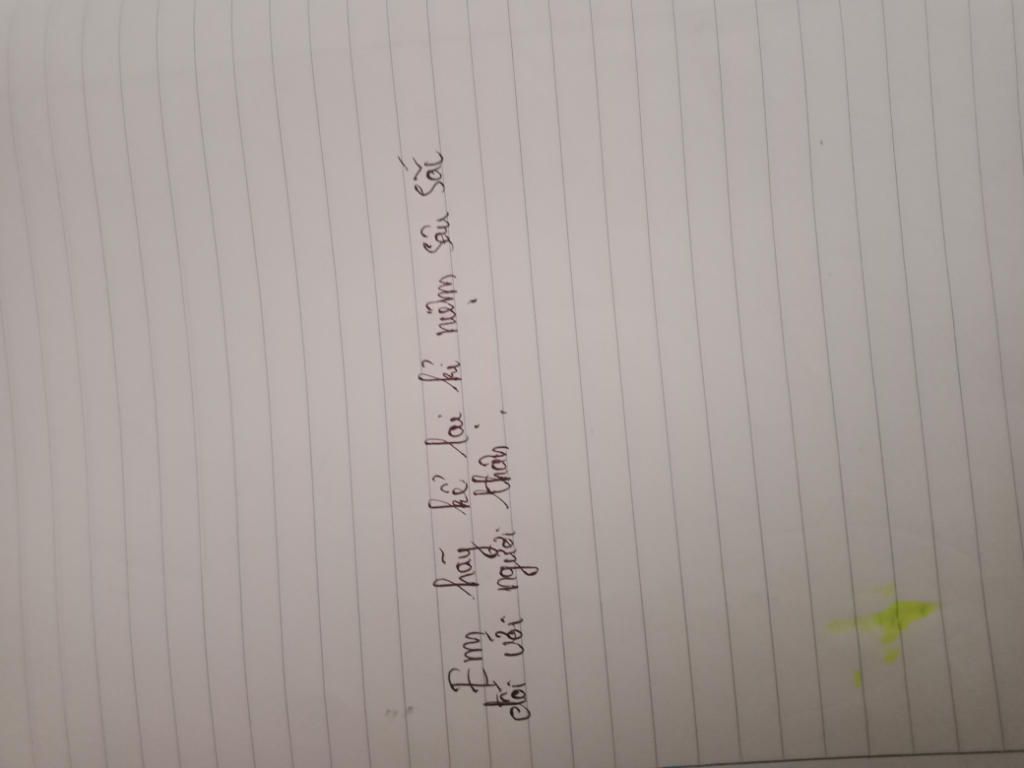 Em hãy kể lại kỉ niệm sâu sắc
đối với người thân.